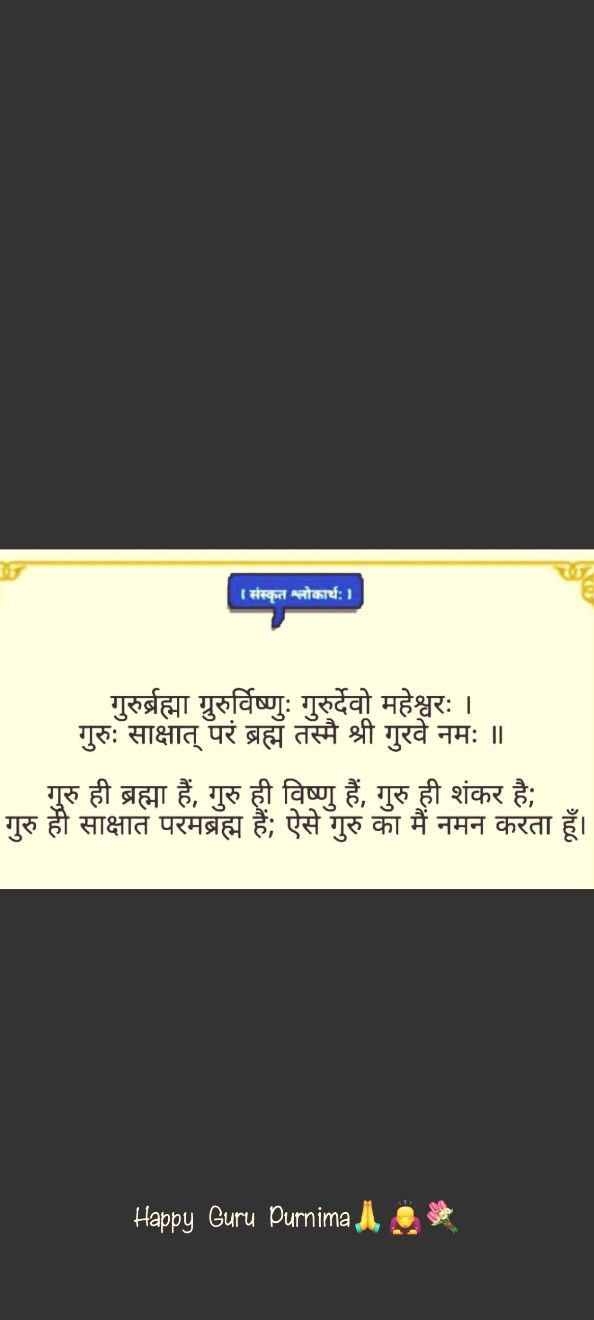 [ संस्कृत श्लोकार्थ: ]
गुरुर्ब्रह्मा ग्रुरुर्विष्णुः गुरुर्देवो महेश्वरः ।
गुरुः साक्षात् परं ब्रह्म तस्मै श्री गुरवे नमः ॥
गुरु ही ब्रह्मा हैं, गुरु ही विष्णु हैं, गुरु ही शंकर है;
गुरु ही साक्षात परमब्रह्म हैं; ऐसे गुरु का मैं नमन करता हूँ।
Happy Guru Purnima🙏🙇💐